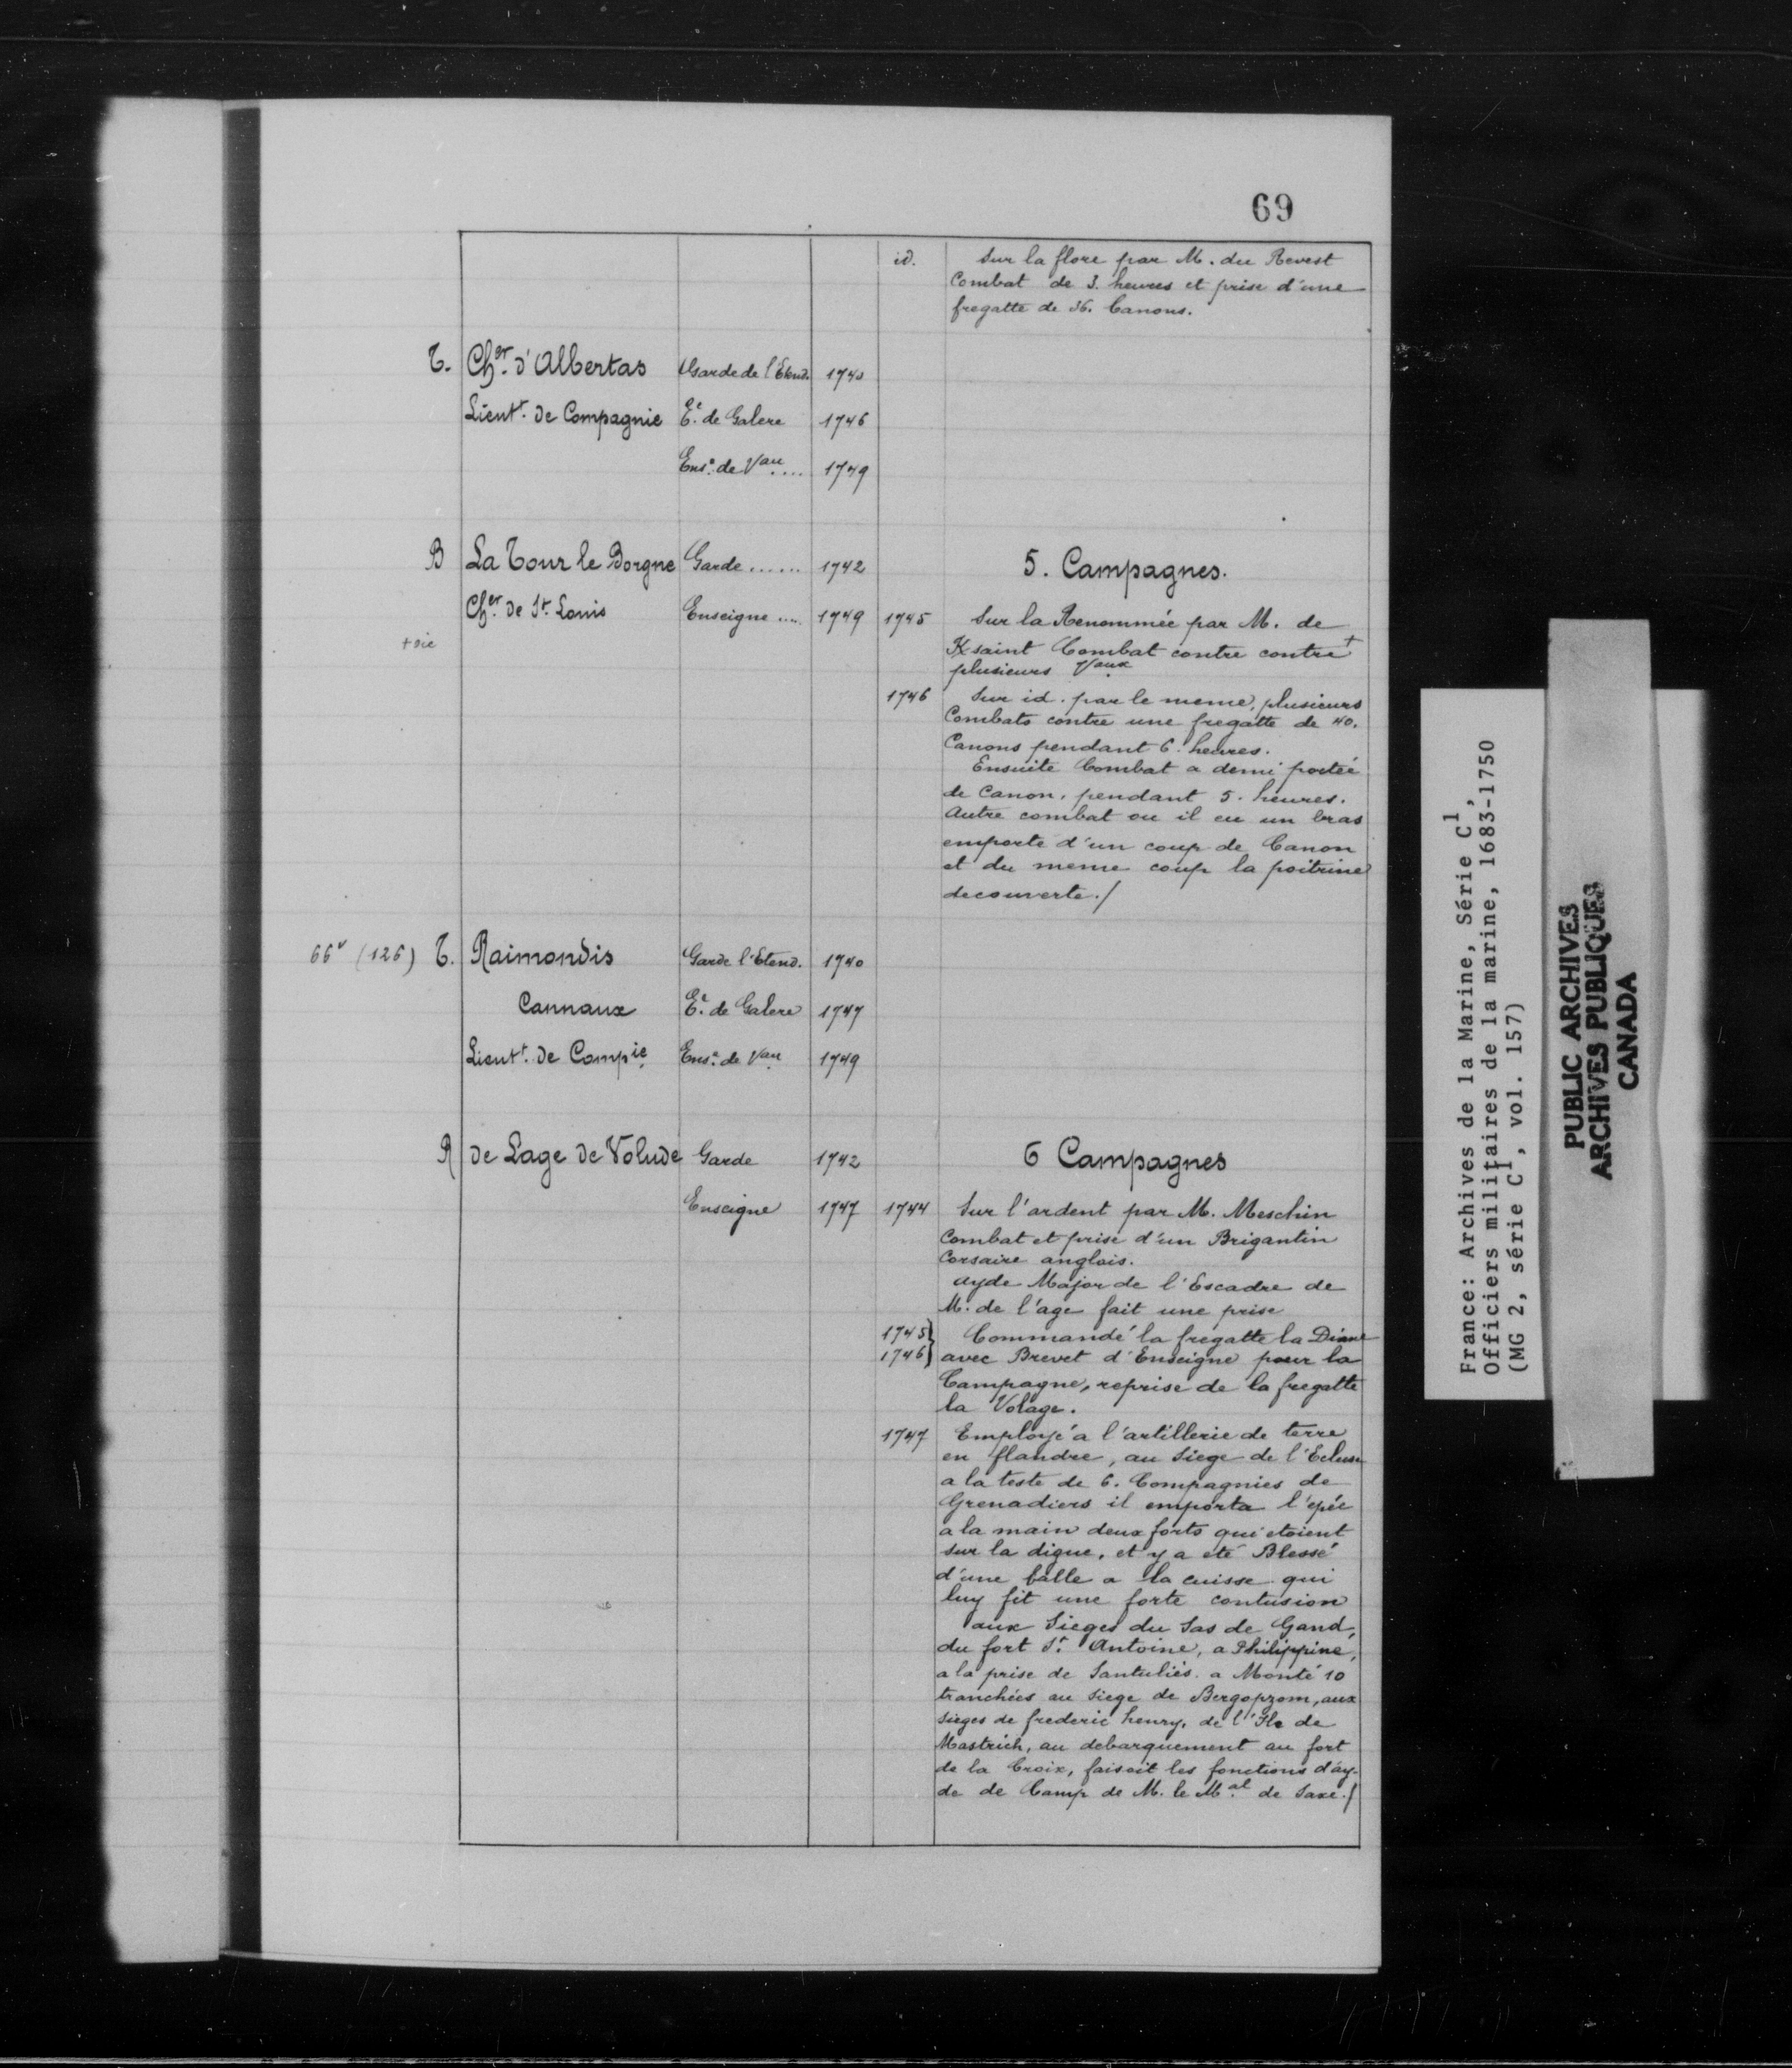 69
id. Sur la flore par M. du Revest
Combat de 3. heures et prise d'une
fregatte de 36. Canons.
T. Ch.er d'Albertas Garde de l'Etend. 1740
Lieut.t de Compagnie E.e de Galere 1746
Ens.e de V.au .... 1749
B La Tour le Borgne Garde ...... 1742 5. Campagnes.
Ch.er de St. Louis Enseigne .... 1749 1745 Sur la Renommée par M. de
+ sic
Ksaint Combat contre contre +
plusieurs V.aux
1746 Sur id. par le meme, plusieurs
Combats contre une fregatte de 40.
Canons pendant 6. heures.
Ensuite Combat a demi portée
de Canon, pendant 5. heures.
Autre combat ou il eu un bras
emporte d'un coup de Canon
et du meme coup la poitrine
decouverte./
66v (126) T. Raimondis Garde l'Etend. 1740
Cannaux E.e de Galere 1747
Lieut.t de Comp.ie Ens.e de V.au 1749
R de Lage de Volude Garde 1742 6 Campagnes
Enseigne 1747 1744 Sur l'ardent par M. Meschin
Combat et prise d'un Brigantin
Corsaire anglois.
Ayde Major de l'Escadre de
M. de l'age fait une prise
1745} Commandé la fregatte la Diane
1746} avec Brevet d'Enseigne pour la
Campagne, reprise de la fregatte
la Volage.
1747 Employé a l'artillerie de terre
en flandre, au Siege de l'Ecluse
a la teste de 6. Compagnies de
Grenadiers il emporta l'epée
a la main deux forts qui etoient
sur la digue, et y a eté Blessé
d'une balle a la cuisse qui
luy fit une forte contusion
aux Sieges du Sas de Gand,
du fort St. Antoine, a Philippine,
a la prise de Santuliés. a Monté 10
tranchées au Siege de Bergopzom, aux
Sieges de frederic henry, de l'Ile de
Mastrich, au debarquement au fort
de la Croix, faisoit les fonctions d'ay-
de de Camp de M. le M.al de Saxe./
France: Archives de la Marine, Série C1,
Officiers militaires de la marine, 1683-1750
(MG 2, série C1, vol. 157)
PUBLIC ARCHIVES
ARCHIVES PUBLIQUES
CANADA